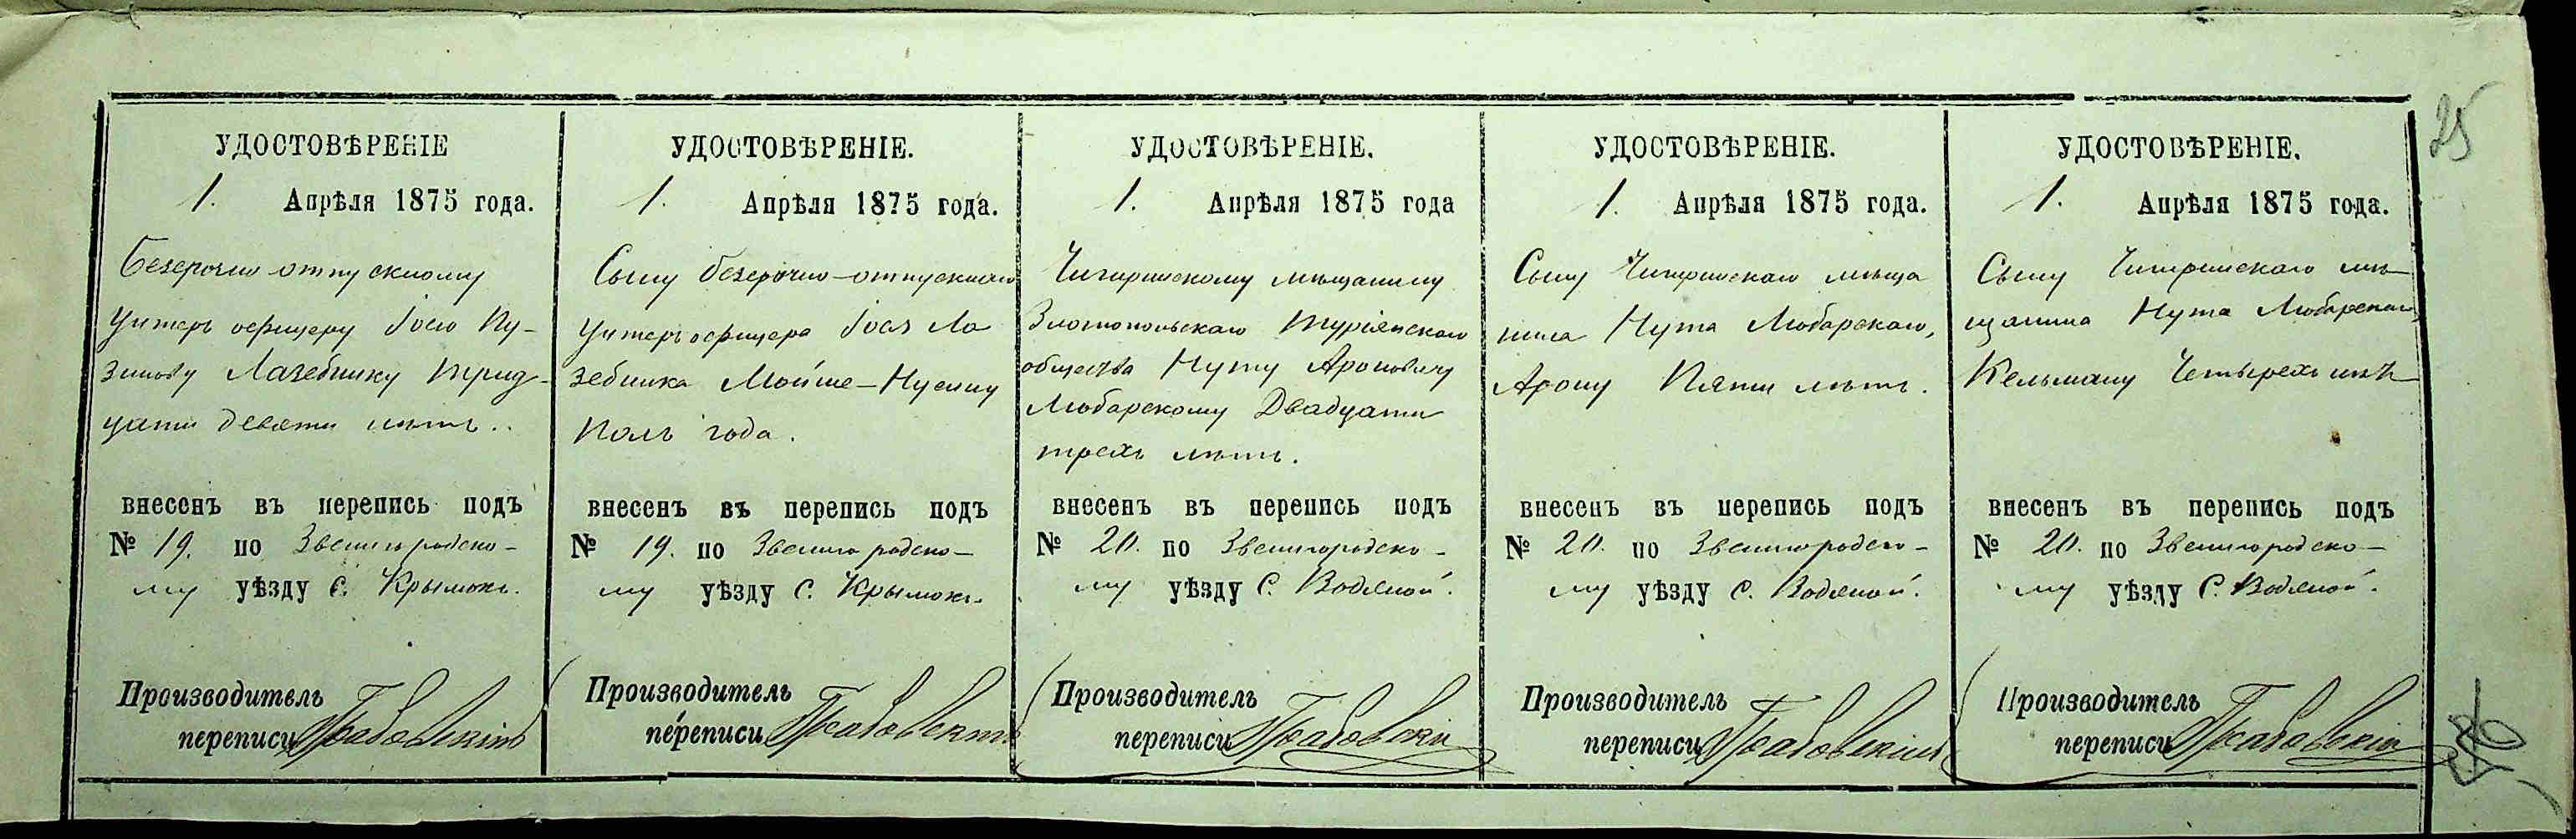 25
УДОСТОВѢРЕНІЕ
1. Апрѣля 1875 года.
Безсрочно-отпускному
Унтеръ офицеру
Лазебнику Трид-
цати девяти лѣтъ..
внесенъ въ перепись подъ
№ 19. по Звенигородско-
му уѣзду С. Крымокъ.
Производитель
переписи Грабовскій
УДОСТОВѢРЕНІЕ.
1. Апрѣля 1875 года.
Сыну безсрочно-отпускнаго
Унтеръ офицера Ла
зебника Мойше-Нусину
Полъ года.
внесенъ въ перепись подъ
№ 19. по Звенигородско-
му уѣзду С. Крымокъ.
Производитель
переписи Грабовскій
УДОСТОВѢРЕНІЕ.
1. Апрѣля 1875 года
Чигиринскому мѣщанину
Златопольскаго Туріянскаго
общества Нуту Ароновичу
Любарскому Двадцати
трехъ лѣтъ.
внесенъ въ перепись подъ
№ 20. по Звенигородско-
му уѣзду С. Водяной.
Производитель
переписи Грабовскій
УДОСТОВѢРЕНІЕ.
1. Апрѣля 1875 года.
Сыну Чигиринскаго мѣща
нина Нута Любарскаго,
Арону Пяти лѣтъ.
внесенъ въ перепись подъ
№ 20. по Звенигородско-
му уѣзду С. Водяной.
Производитель
переписи Грабовскій
УДОСТОВѢРЕНІЕ.
1. Апрѣля 1875 года.
Сыну Чигиринскаго мѣ-
щанина Нута Любарскаго,
Кельману Четырехъ лѣтъ
внесенъ въ перепись подъ
№ 20. по Звенигородско-
му уѣзду С. Водяной.
Производитель
переписи Грабовскій